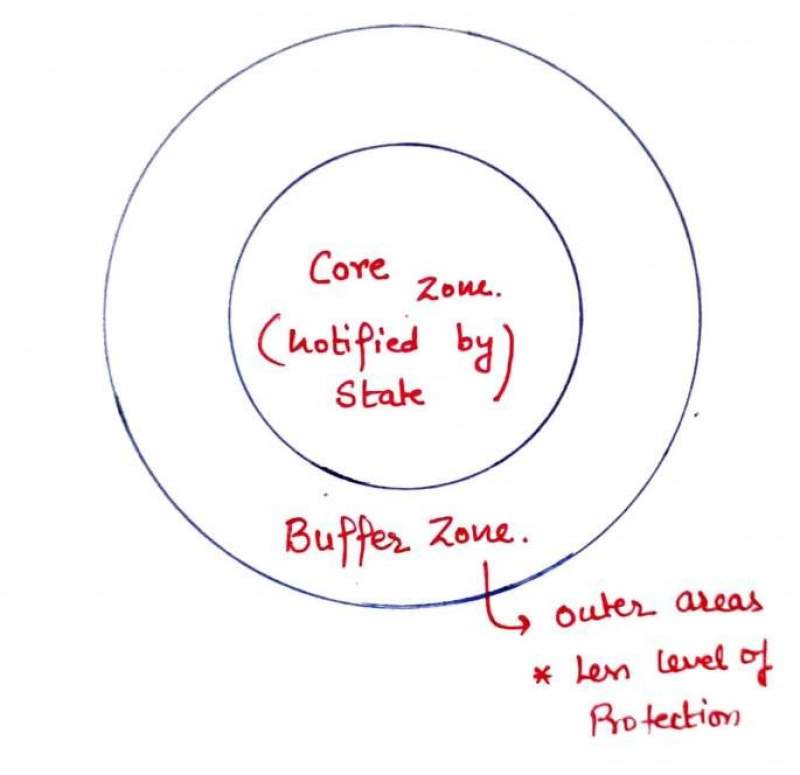 Core zone.
(notified by)
State
Buffer Zone.
outer areas
* Less level of
Protection